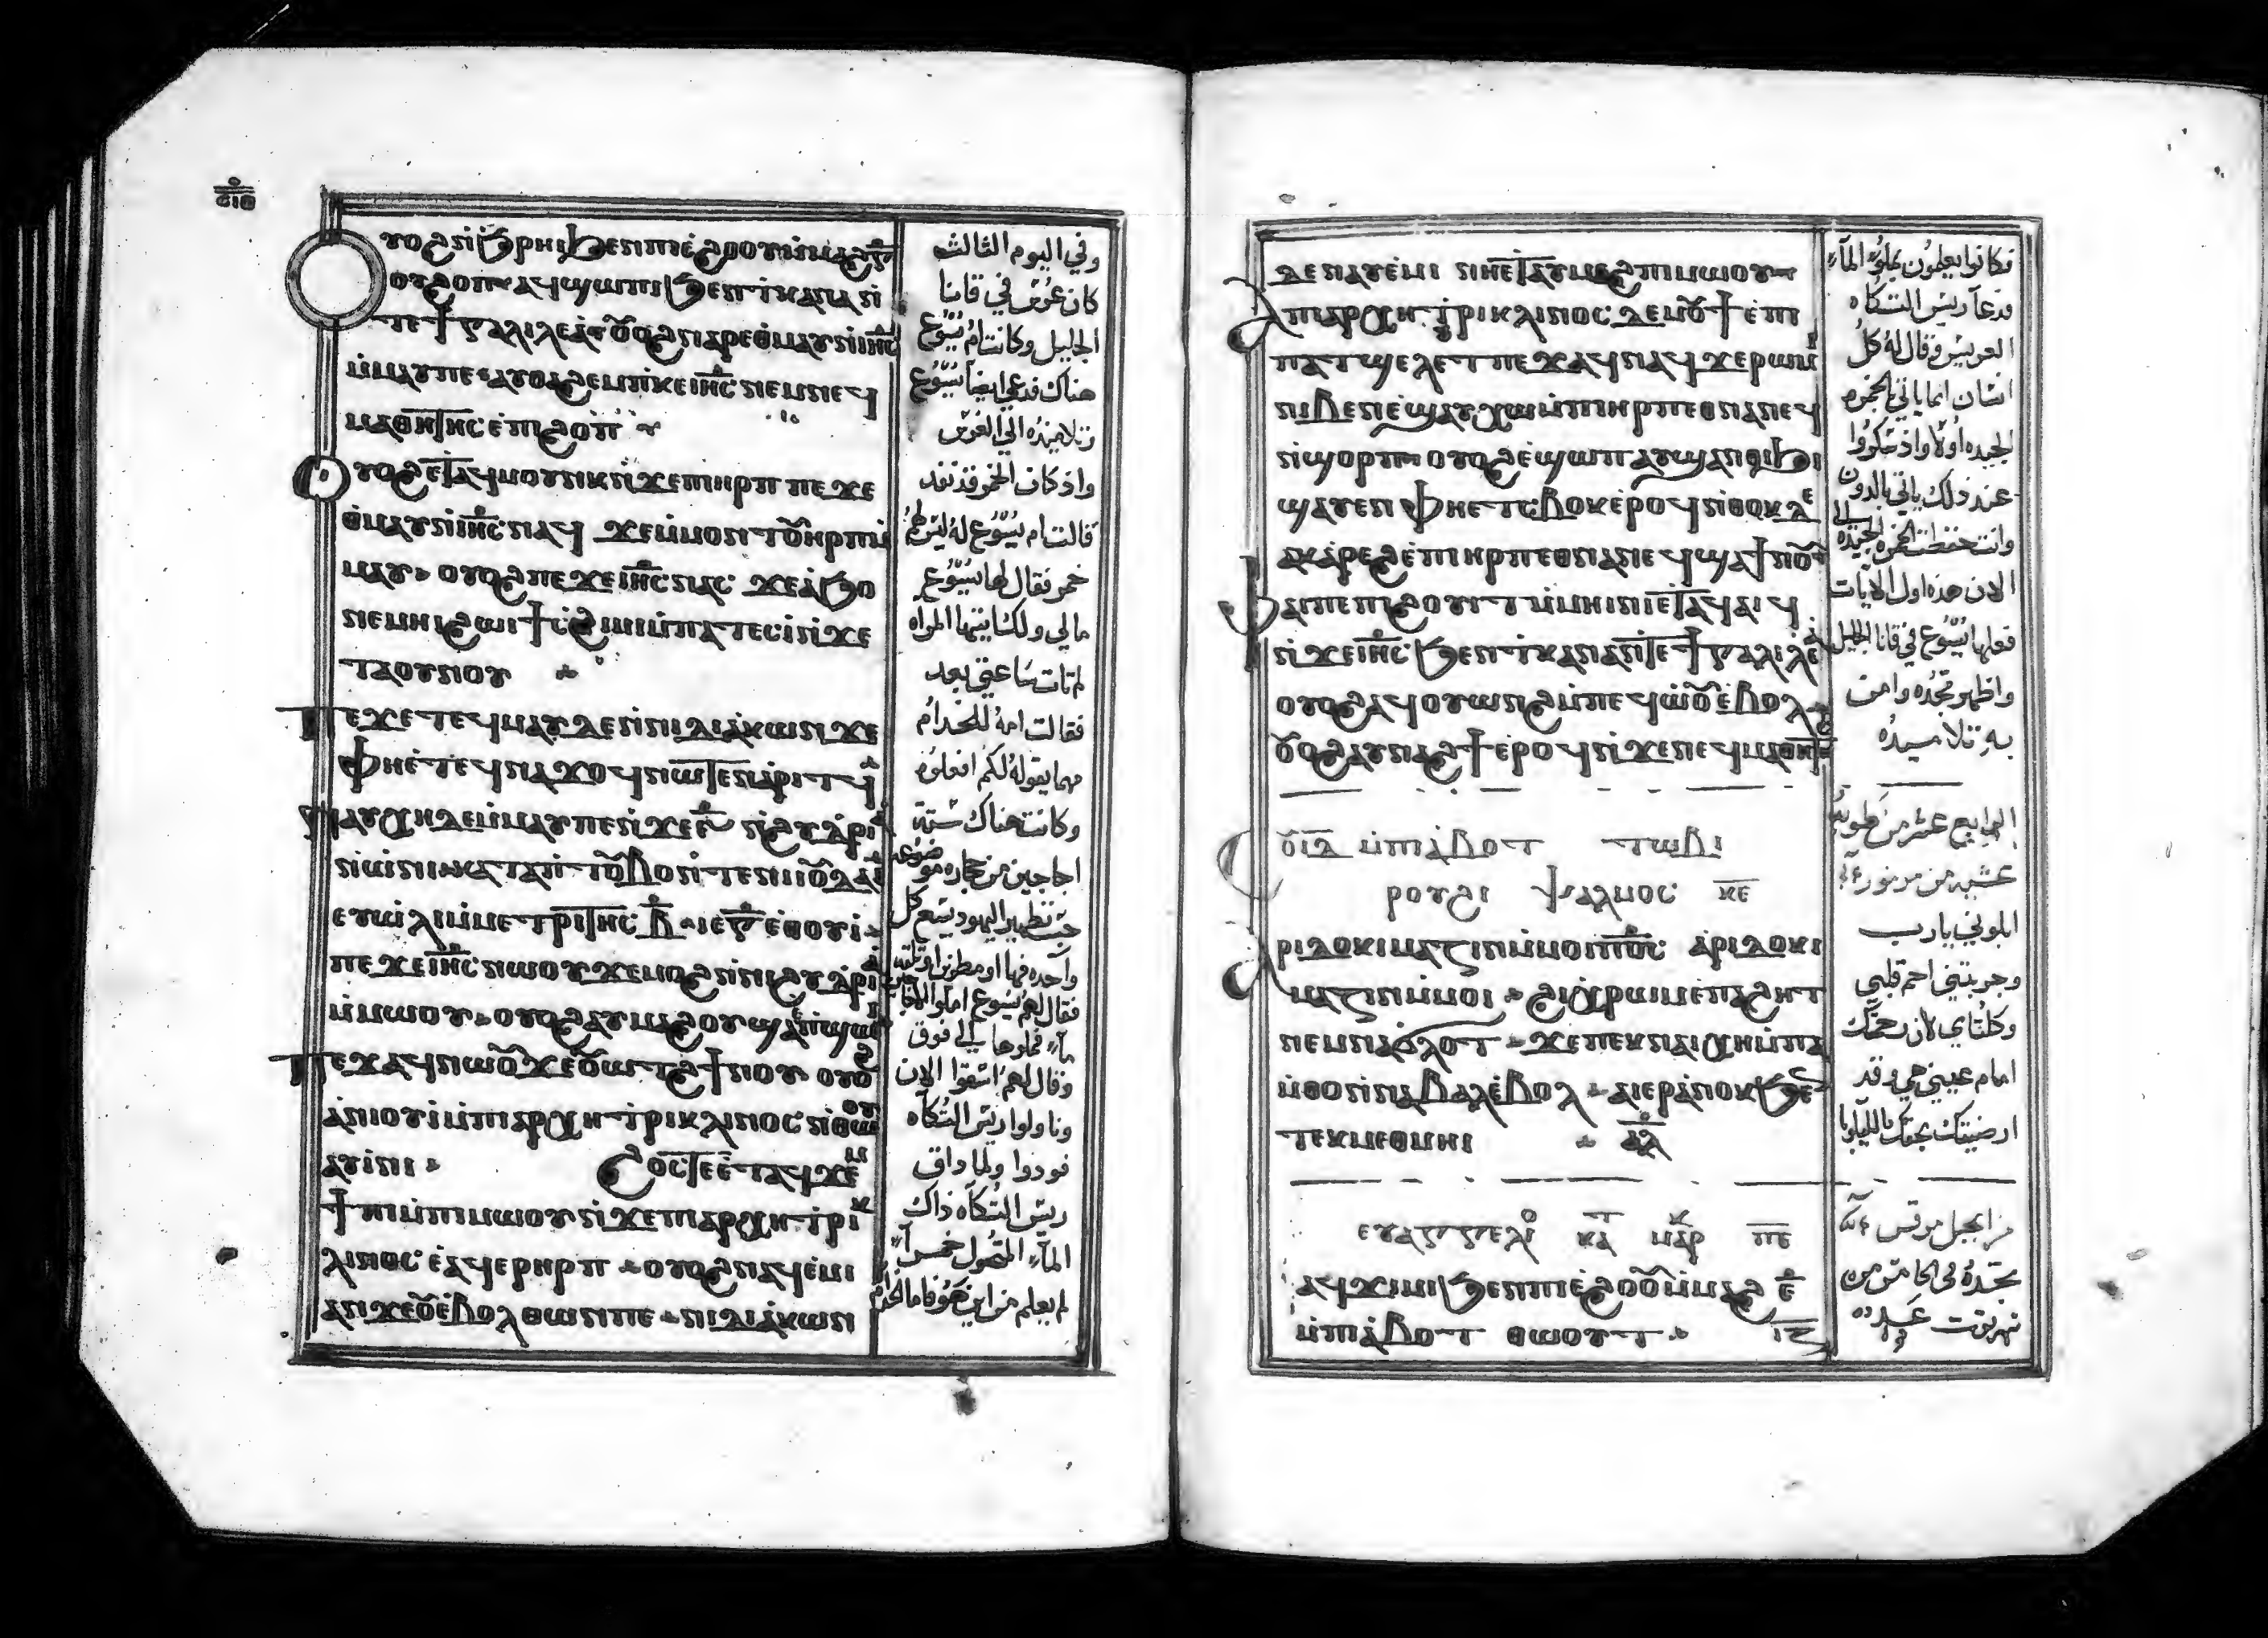 ⲥⲓⲑ
ⲟⲩⲟϩ ⲛϩⲣⲏⲓ ϧⲉⲛ ⲡⲓⲉϩⲟⲟⲩ ⲙⲙⲁϩ ⲅ̅
ⲟⲩϩⲟⲡ ⲁϥϣⲱⲡⲓ ϧⲉⲛ ⲧⲕⲁⲛⲁ ⲛ
ⲧⲉ ϯⲅⲁⲗⲓⲗⲉⲁ ⲟⲩⲟϩ ⲛⲁⲣⲉ ⲑⲙⲁⲩ ⲛⲓⲏⲥ
ⲙⲙⲁⲩ ⲡⲉ ⲁⲩⲑⲁϩⲉⲙ ⲡⲕⲉⲓⲏⲥ ⲛⲉⲙ ⲛⲉϥ
ⲙⲁⲑⲏⲧⲏⲥ ⲉⲡⲓϩⲟⲡ
ⲟⲩⲟϩ ⲉⲧⲁϥⲙⲟⲩⲛⲕ ⲛϫⲉ ⲡⲓⲏⲣⲡ ⲡⲉϫⲉ
ⲑⲙⲁⲩ ⲛⲓⲏⲥ ⲛⲁϥ ϫⲉ ⲙⲙⲟⲛ ⲧⲟⲩ ⲏⲣⲡ ⲙ
ⲙⲁⲩ ⲟⲩⲟϩ ⲡⲉϫⲉ ⲓⲏⲥ ⲛⲁⲥ ϫⲉ ⲁϧⲟ
ⲛⲉⲙⲏⲓ ϩⲱⲓ ϯⲥϩⲓⲙⲓ ⲙⲡⲁⲧⲉⲥⲓ ⲛϫⲉ
ⲧⲁⲟⲩⲛⲟⲩ
ⲡⲉϫⲉ ⲧⲉϥⲙⲁⲩ ⲇⲉ ⲛⲛⲓⲇⲓⲁⲕⲱⲛ ϫⲉ
ⲫⲏⲉⲧⲉϥⲛⲁϫⲟϥ ⲛⲱⲧⲉⲛ ⲁⲣⲓⲧϥ
ⲛⲁⲩⲭⲏ ⲇⲉ ⲙⲙⲁⲩ ⲡⲉ ⲛϫⲉ ⲋ̅ ⲛϩⲩⲇⲣⲓ
ⲁ ⲛⲱⲛⲓ ⲕⲁⲧⲁ ⲡⲧⲟⲩⲃⲟ ⲛⲧⲉ ⲛⲓⲓⲟⲩⲇⲁⲓ
ⲉⲩϣⲱⲗⲓ ⲙⲙⲉⲧⲣⲓⲧⲏⲥ ⲃ̅ ⲓⲉ ⲅ̅ ⲉⲑⲟⲩⲓ
ⲡⲉϫⲉ ⲓⲏⲥ ⲛⲱⲟⲩ ϫⲉ ⲙⲟϩ ⲛⲛⲓϩⲩⲇⲣⲓⲁ
ⲙⲙⲱⲟⲩ ⲟⲩⲟϩ ⲁⲩⲙⲁϩⲟⲩ ϣⲁ ⲡϣⲱⲓ
ⲡⲉϫⲁϥ ⲛⲱⲟⲩ ϫⲉ ⲟⲩⲱⲧϩ ϯⲛⲟⲩ ⲟⲩⲟϩ
ⲁⲛⲓⲟⲩⲓ ⲙⲡⲓⲁⲣⲭⲏⲧⲣⲓⲕⲗⲓⲛⲟⲥ ⲛⲑⲱⲟⲩ
ⲁⲩⲓⲛⲓ ϩⲟⲥⲧⲉ ⲉⲧⲁϥϫⲉⲙ
ϯⲡⲓ ⲙⲡⲓⲙⲱⲟⲩ ⲛϫⲉ ⲡⲓⲁⲣⲭⲏⲧⲣⲓⲕ
ⲗⲓⲛⲟⲥ ⲉⲁϥⲉⲣⲏⲣⲡ ⲟⲩⲟϩ ⲛⲁϥⲉⲙⲓ
ⲁⲛ ϫⲉ ⲟⲩ ⲉⲃⲟⲗ ⲑⲱⲛ ⲡⲉ ⲛⲓⲇⲓⲁⲕⲱⲛ
وفي اليوم الثالث
كان عرس في قانا
الجليل وكانت ام يسوع
هناك فدعي ايضا يسوع
وتلاميذه الي العرس
واذ كان الخمر قد نفد
قالت ام يسوع له ليس لهم
خمر فقال لها يسوع
مالي ولك ايتها المراه
لم تات ساعتي بعد
فقالت امه للخدام
مهما يقوله لكم افعلوه
وكانت هناك سته
اجاجين من حجاره موضوعه
حسب تطهير اليهود يسع كل
واحده فيها او مطرين او ثلثه
فقال لهم يسوع املوا الاجاجين
ماء فملوها الي فوق
وقال لهم استقوا الان
وناولوا ريس التكاه
فوردوا ولما ذاق
ريس التكاه ذاك
الماء المتحول خمرا
لم يعلم من اين هو فاما الخدام
ⲇⲉ ⲛⲁⲩⲉⲙⲓ ⲛⲏⲉⲧⲁⲩⲙⲁϩ ⲡⲓⲙⲱⲟⲩ
ⲁ ⲡⲓⲁⲣⲭⲏⲧⲣⲓⲕⲗⲓⲛⲟⲥ ⲇⲉ ⲙⲟⲩϯ ⲉⲡⲓ
ⲡⲁⲧϣⲉⲗⲉⲧ ⲡⲉϫⲁϥ ⲛⲁϥ ϫⲉ ⲣⲱⲙⲓ
ⲛⲓⲃⲉⲛ ⲉϣⲁⲩⲭⲱ ⲙⲡⲓⲏⲣⲡ ⲉⲑⲛⲁⲛⲉϥ
ⲛϣⲟⲣⲡ ⲟⲩⲟϩ ⲉϣⲱⲡ ⲁⲩϣⲁⲛⲑⲓϧⲓ
ϣⲁⲩⲉⲛ ⲫⲏⲉⲧϭⲃⲟⲕ ⲉⲣⲟϥ ⲛⲑⲟⲕ ⲇⲉ
ⲁⲕⲁⲣⲉϩ ⲉⲡⲓⲏⲣⲡ ⲉⲑⲛⲁⲛⲉϥ ϣⲁ ϯⲛⲟⲩ
ⲫⲁⲓ ⲡⲉ ⲡⲓϩⲟⲩⲓⲧ ⲙⲙⲏⲓⲛⲓ ⲉⲧⲁϥⲁⲓϥ
ⲛϫⲉ ⲓⲏⲥ ϧⲉⲛ ⲧⲕⲁⲛⲁ ⲛⲧⲉ ϯⲅⲁⲗⲓⲗⲉⲁ
ⲟⲩⲟϩ ⲁϥⲟⲩⲱⲛϩ ⲙⲡⲉϥⲱⲟⲩ ⲉⲃⲟⲗ
ⲟⲩⲟϩ ⲁⲩⲛⲁϩϯ ⲉⲣⲟϥ ⲛϫⲉ ⲛⲉϥⲙⲁⲑⲏⲧⲏⲥ
ⲥⲟⲩ ⲓⲇ ⲙⲡⲓⲁⲃⲟⲧ ⲧⲱⲃⲓ
ⲣⲟⲩϩⲓ ⲯⲁⲗⲙⲟⲥ ⲕⲉ
ⲁⲣⲓⲇⲟⲕⲓⲙⲁⲍⲓⲛ ⲙⲙⲟⲓ ⲡϭⲟⲓⲥ ⲁⲣⲓⲇⲟⲕⲓ
ⲙⲁⲍⲓⲛ ⲙⲙⲟⲓ ϩⲓⲭⲣⲱⲙ ⲉⲡⲁϩⲏⲧ
ⲛⲉⲙ ⲛⲁϭⲗⲟⲧ ϫⲉ ⲡⲉⲕⲛⲁⲓ ⲭⲏ ⲙⲡⲁ
ⲙⲑⲟ ⲛⲛⲁⲃⲁⲗ ⲉⲃⲟⲗ ⲁⲓⲉⲣⲁⲛⲟⲕ ϧⲉⲛ
ⲧⲉⲕⲙⲉⲑⲙⲏⲓ ⲁⲗ
ⲉⲩⲁⲅⲅⲉⲗⲓⲟ ⲕⲁⲧ ⲙⲁⲣⲕ ⲡⲉ
ⲁϥϫⲓⲙⲓ ϧⲉⲛ ⲡⲓⲉϩⲟⲟⲩ ⲙⲙⲁϩ ⲉ̅
ⲙⲡⲓⲁⲃⲟⲧ ⲑⲱⲟⲩⲧ
فكانوا يعلمون بملو الماء
فدعا ريس التكاه
العريس وقال له كل
انسان انما ياتي بالخمره
الجيده اولا واذ سكروا
عند ذلك ياتي بالدون
وانت حفظت الخمره الجيده الي
الان هذه اول الايات
فعلها يسوع في قانا الجليل
واظهر مجده وامن
به تلاميذه
الرابع عشر من طوبه
عشيه من مزمور
ابلوني يا رب
وجربني احم قلبي
وكلتاي لان رحمتك
امام عيني هي وقد
ارضيتك بحقك الليلويا
من انجيل مرقس
تجده في الخامس من
شهر توت